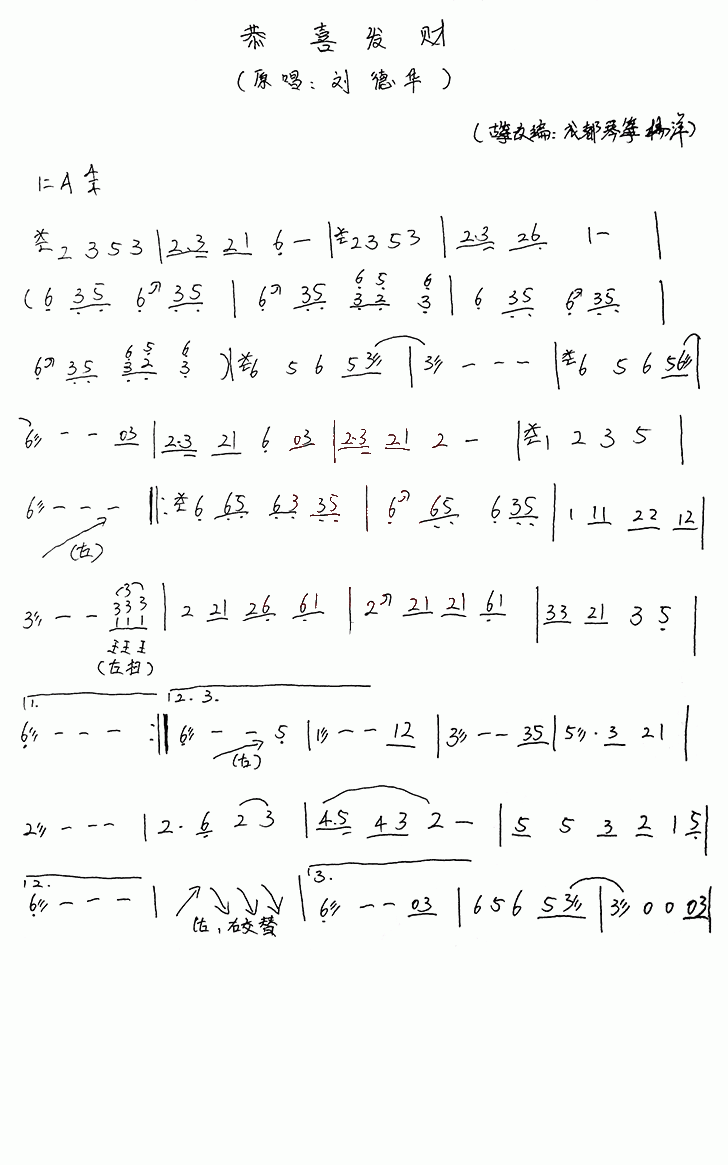 恭喜发财
(原唱:刘德华)
(古筝改编:成都琴筝 杨洋)
1=A 4/4
2 3 5 3 | 2.3 21 6 — | 2 3 5 3 | 2.3 26 1 — |
(6 35 6 35 | 6 35 63 52 63 | 6 35 6 35 |
6 35 63 52 63 )| 6 5 6 53 | 3 — — — | 6 5 6 56 |
6 — — 03 | 2.3 21 6 03 | 2.3 21 2 — | 1 2 3 5 |
6 — — — ‖: 6 65 63 35 | 6 65 6 35 | 1 11 22 12 |
(左)
3 — — 333 | 2 21 26 61 | 2 21 21 61 | 33 21 3 5 |
111
(左扫)
1. 2. 3.
6 — — — :‖ 6 — — 5 | 1 — — 12 | 3 — — 35 | 5 . 3 21 |
(左)
2 — — — | 2. 6 2 3 | 4.5 43 2 — | 5 5 3 2 1 5 |
2. 3.
6 — — — | | 6 — — 03 | 6 5 6 53 | 3 0 0 03 |
(左,右交替